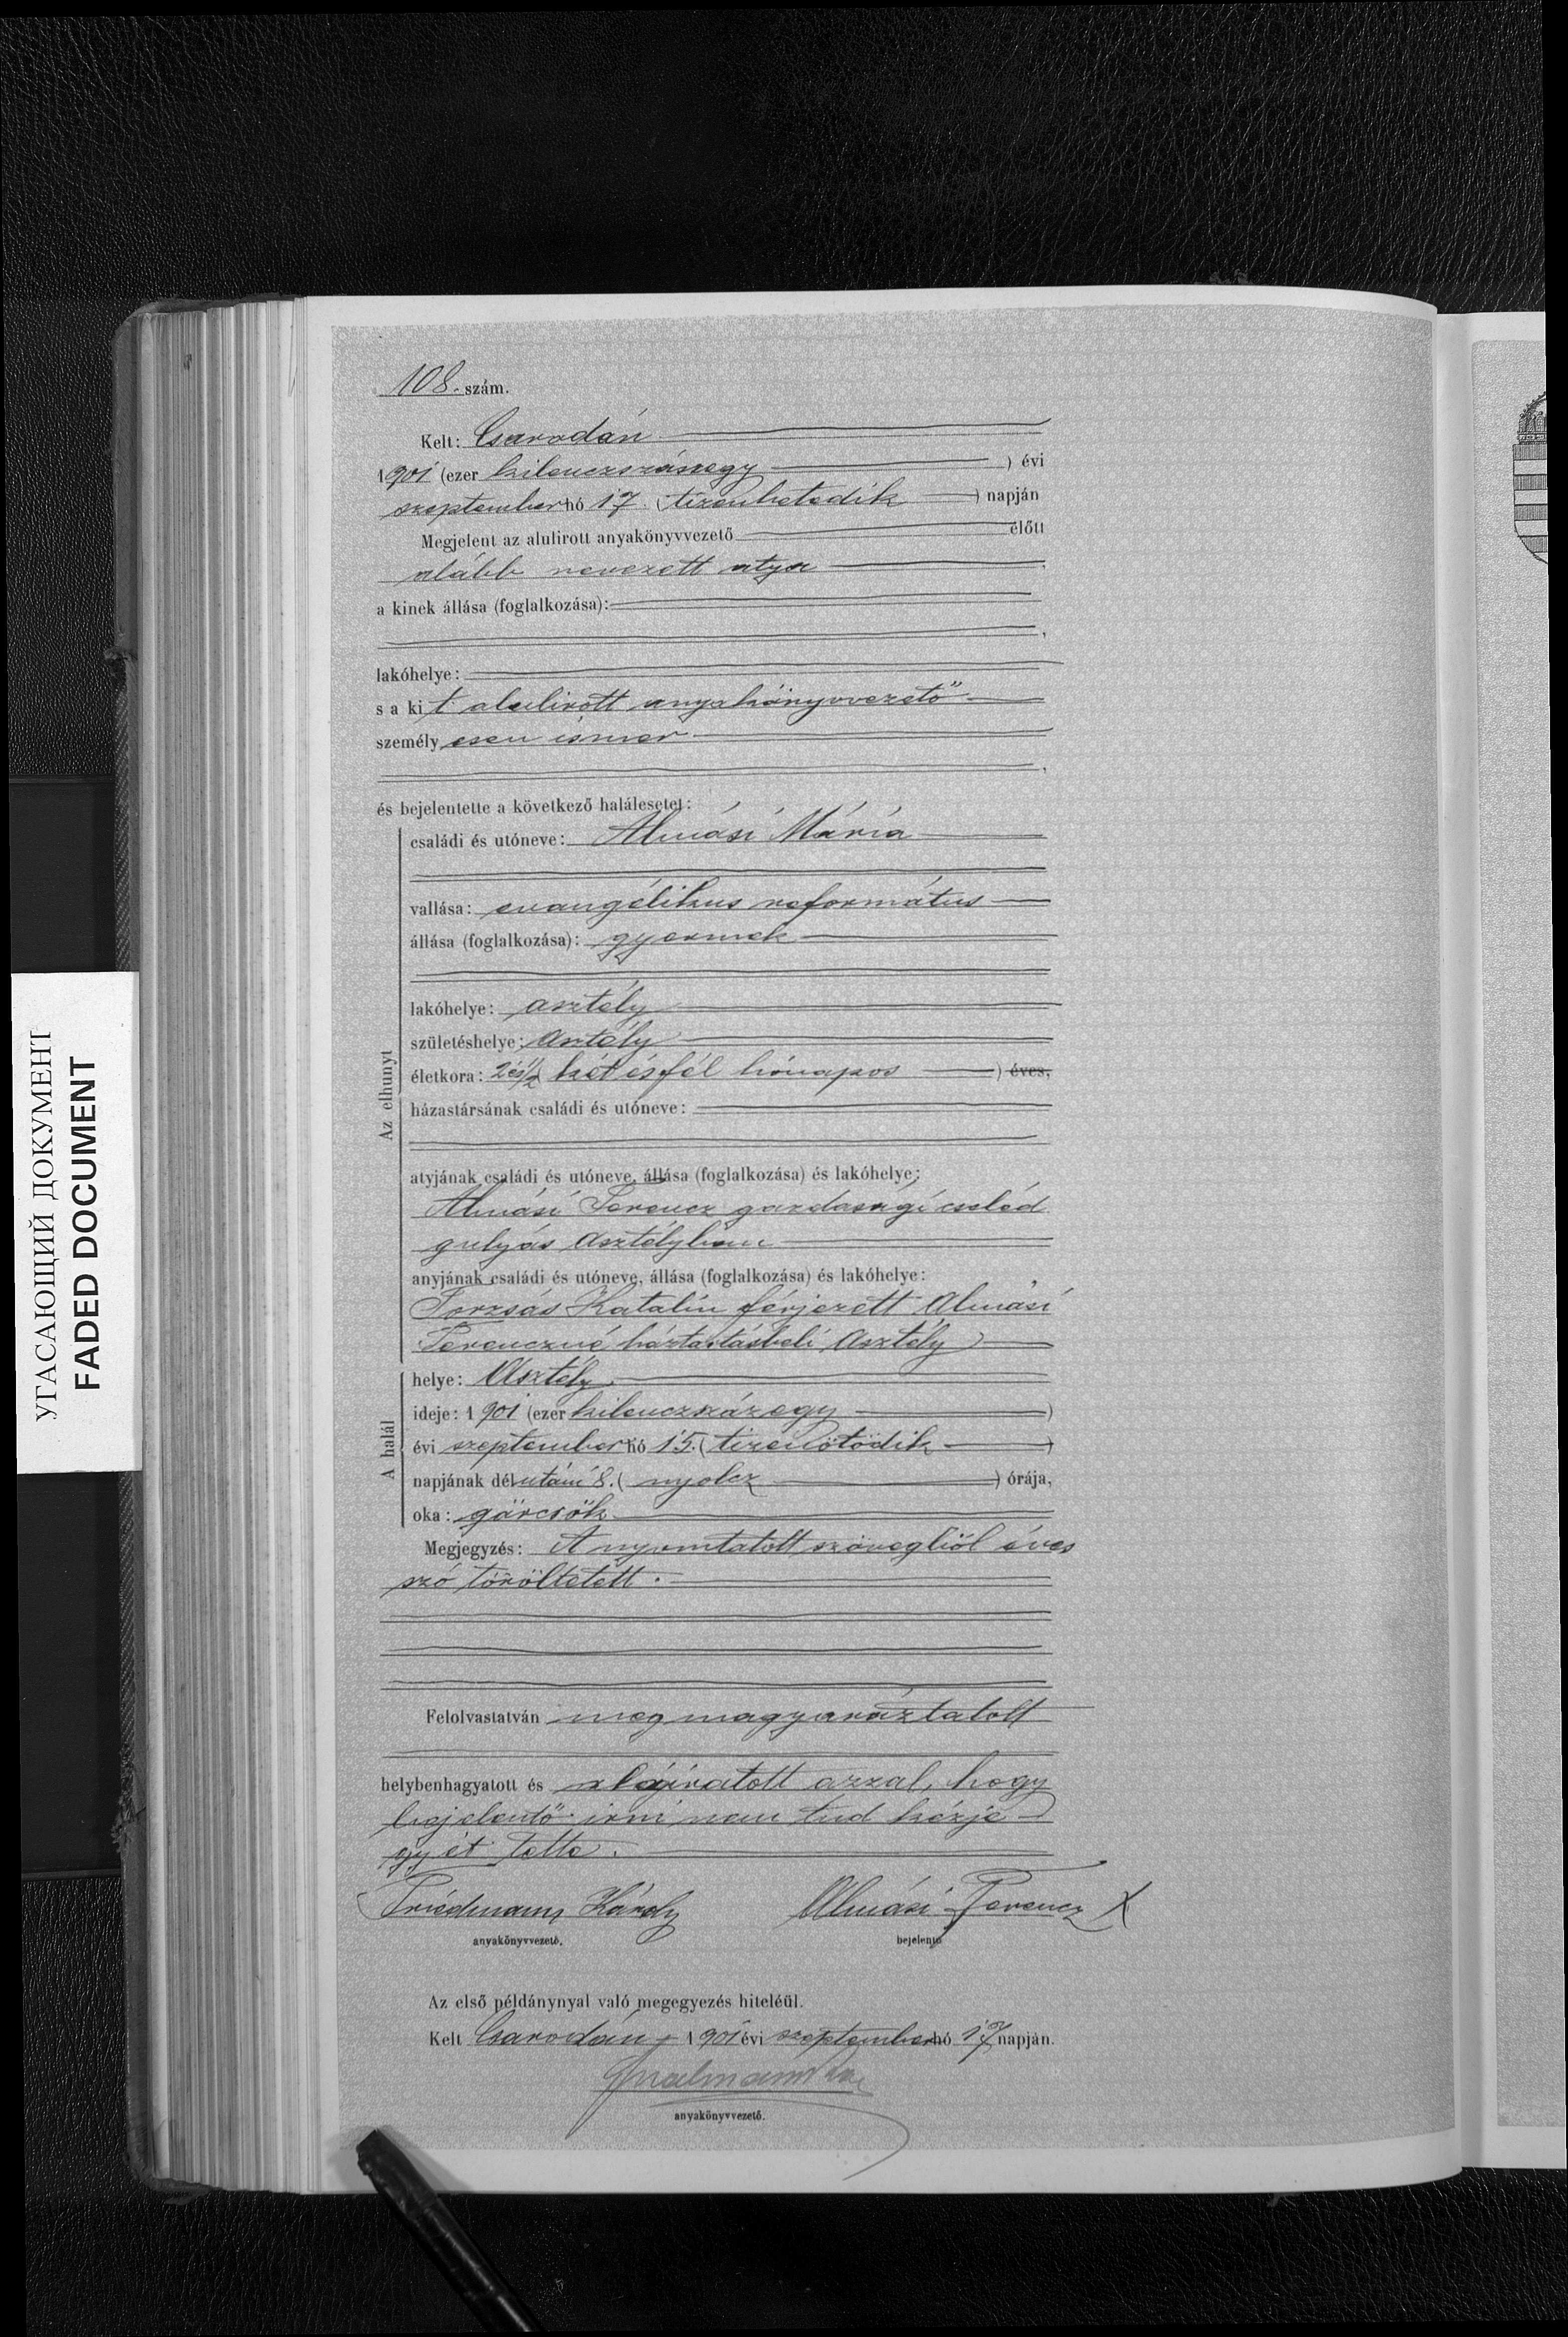 108. szám.
Kelt: Csarodán
1901 (ezer kilenczszázegy) évi
szeptember hó 17 (tizenhetedik) napján
Megjelent az alulirott anyakönyvvezető előtt
alább nevezett atya
a kinek állása (foglalkozása):
lakóhelye:
s a kit alulirott anyakönyvvezető
személyesen ismer
és bejelentette a következő halálesetet:
Az elhunyt
családi és utóneve: Almási Mária
vallása: evangélikus református
állása (foglalkozása): gyermek
lakóhelye: asztély
születéshelye: Asztély
életkora: 2 és 1/2 (két és fél hónapos) éves,
házastársának családi és utóneve:
atyjának családi és utóneve, állása (foglalkozása) és lakóhelye:
Almási Ferencz gazdasági cseléd
gulyás Asztélyban
anyjának családi és utóneve, állása (foglalkozása) és lakóhelye:
Forzsás Katalin férjezett Almási
Ferenczné háztartásbeli Asztély
A halál
helye: Asztély
ideje: 1901 (ezer kilenczszázegy)
évi szeptember hó 15. (tizenötödik)
napjának délutáni 8. (nyolcz) órája,
oka: görcsök
Megjegyzés: A nyomtatott szövegből éves
szó töröltetett.
Felolvastatván megmagyaráztatott
helybenhagyatott és aláiratott azzal, hogy
bejelentő irni nem tud kézje-
gyét tette.
Friedmann Károly
anyakönyvvezető.
Almási Ferencz X
bejelentő
Az első példánynyal való megegyezés hiteléül.
Kelt Csarodán 1901 évi szeptember hó 17 napján.
anyakönyvvezető.
УГАСАЮЩИЙ ДОКУМЕНТ
FADED DOCUMENT